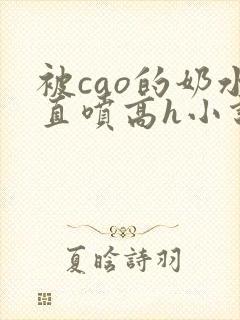 被cao的奶水
直喷高h小说
夏晗詩羽